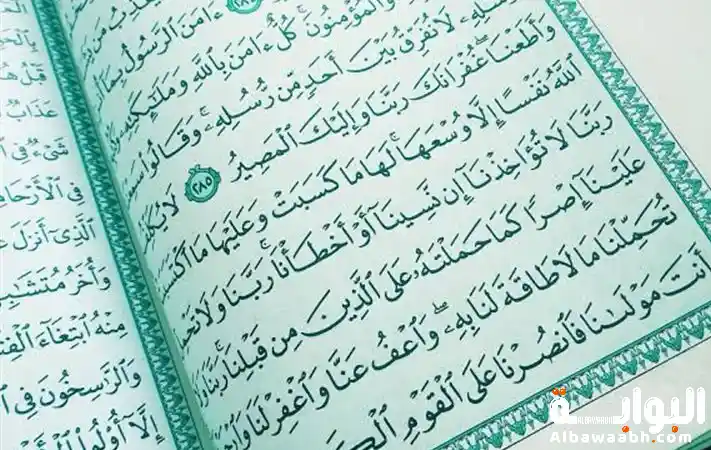 ءَامَنَ ٱلرَّسُولُ بِمَآ
وَٱلْمُؤْمِنُونَ كُلٌّ ءَامَنَ بِٱللَّهِ وَمَلَٰٓئِكَتِهِۦ
لَا نُفَرِّقُ بَيْنَ أَحَدٍ مِّن رُّسُلِهِۦ ۚ وَقَالُوا۟
وَأَطَعْنَا ۖ غُفْرَانَكَ رَبَّنَا وَإِلَيْكَ ٱلْمَصِيرُ ٢٨٥ لَا
ٱللَّهُ نَفْسًا إِلَّا وُسْعَهَا ۚ لَهَا مَا كَسَبَتْ وَعَلَيْهَا مَا
رَبَّنَا لَا تُؤَاخِذْنَآ إِن نَّسِينَآ أَوْ أَخْطَأْنَا ۚ رَبَّنَا وَلَا
عَلَيْنَآ إِصْرًا كَمَا حَمَلْتَهُۥ عَلَى ٱلَّذِينَ مِن قَبْلِنَا ۚ رَبَّنَا
تُحَمِّلْنَا مَا لَا طَاقَةَ لَنَا بِهِۦ ۖ وَٱعْفُ عَنَّا وَٱغْفِرْ لَنَا
أَنتَ مَوْلَىٰنَا فَٱنصُرْنَا عَلَى ٱلْقَوْمِ
عَذَابٌ
شَىْءٌ فِى
فِى ٱلْأَرْحَا
ٱلَّذِىٓ أَنزَلَ
وَأُخَرُ مُتَشَٰبِ
مِنْهُ ٱبْتِغَآءَ ٱلْفِتْ
وَٱلرَّٰسِخُونَ فِى
إِلَّآ أُو۟لُوا۟
البوابة
Albawaabh.com